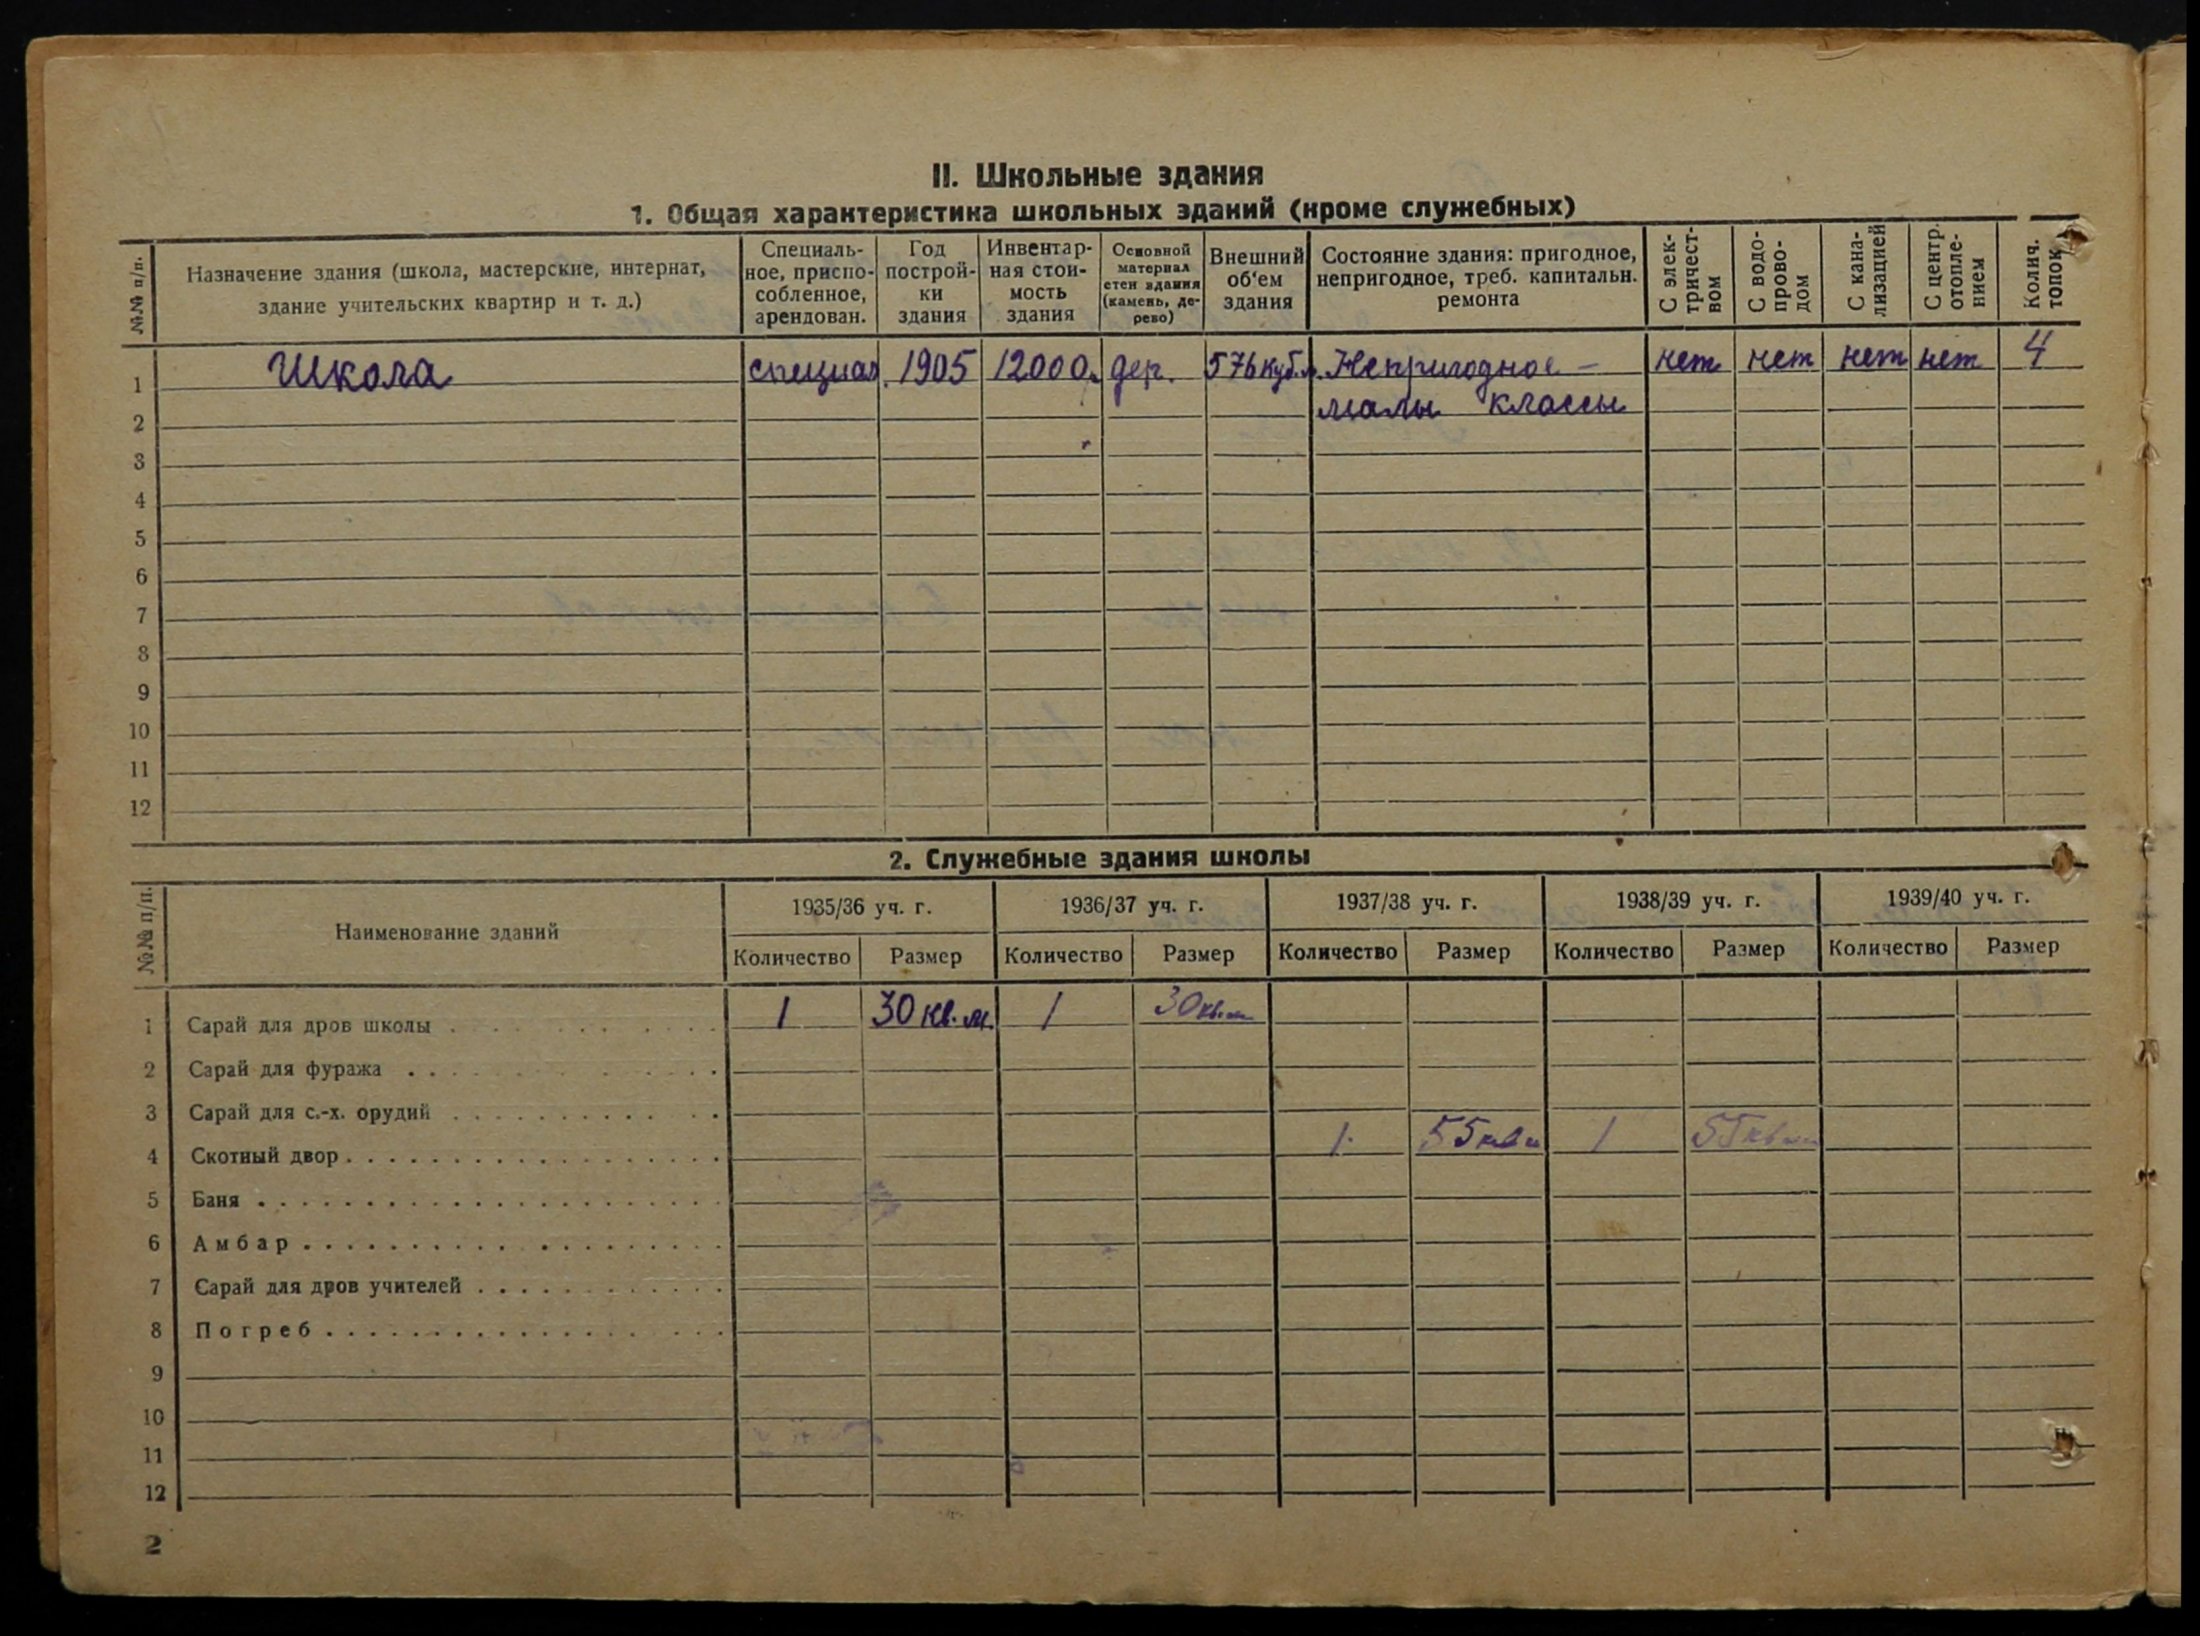 II. Школьные здания
1. Общая характеристика школьных зданий (кроме служебных)
№№ п/п.
Назначение здания (школа, мастерские, интернат,
здание учительских квартир и т. д.)
Специаль-
ное, приспо-
собленное,
арендован.
Год
построй-
ки
здания
Инвентар-
ная стои-
мость
здания
Основной
материал
стен здания
(камень, де-
рево)
Внешний
об'ем
здания
Состояние здания: пригодное,
непригодное, треб. капитальн.
ремонта
С элек-
тричест-
вом
С водо-
прово-
дом
С кана-
лизацией
С центр.
отопле-
нием
Колич.
топок
1 Школа специал. 1905 12000 дер. 576 куб. м. Непригодное – нет нет нет нет 4
2 малы классы
3
4
5
6
7
8
9
10
11
12
2. Служебные здания школы
№№ п/п.
Наименование зданий
1935/36 уч. г. 1936/37 уч. г. 1937/38 уч. г. 1938/39 уч. г. 1939/40 уч. г.
Количество Размер Количество Размер Количество Размер Количество Размер Количество Размер
1 Сарай для дров школы 1 30 кв. м. 1 30 кв. м
2 Сарай для фуража
3 Сарай для с.-х. орудий
4 Скотный двор 1 55 кв м 1 55 кв м
5 Баня
6 Амбар
7 Сарай для дров учителей
8 Погреб
9
10
11
12
2